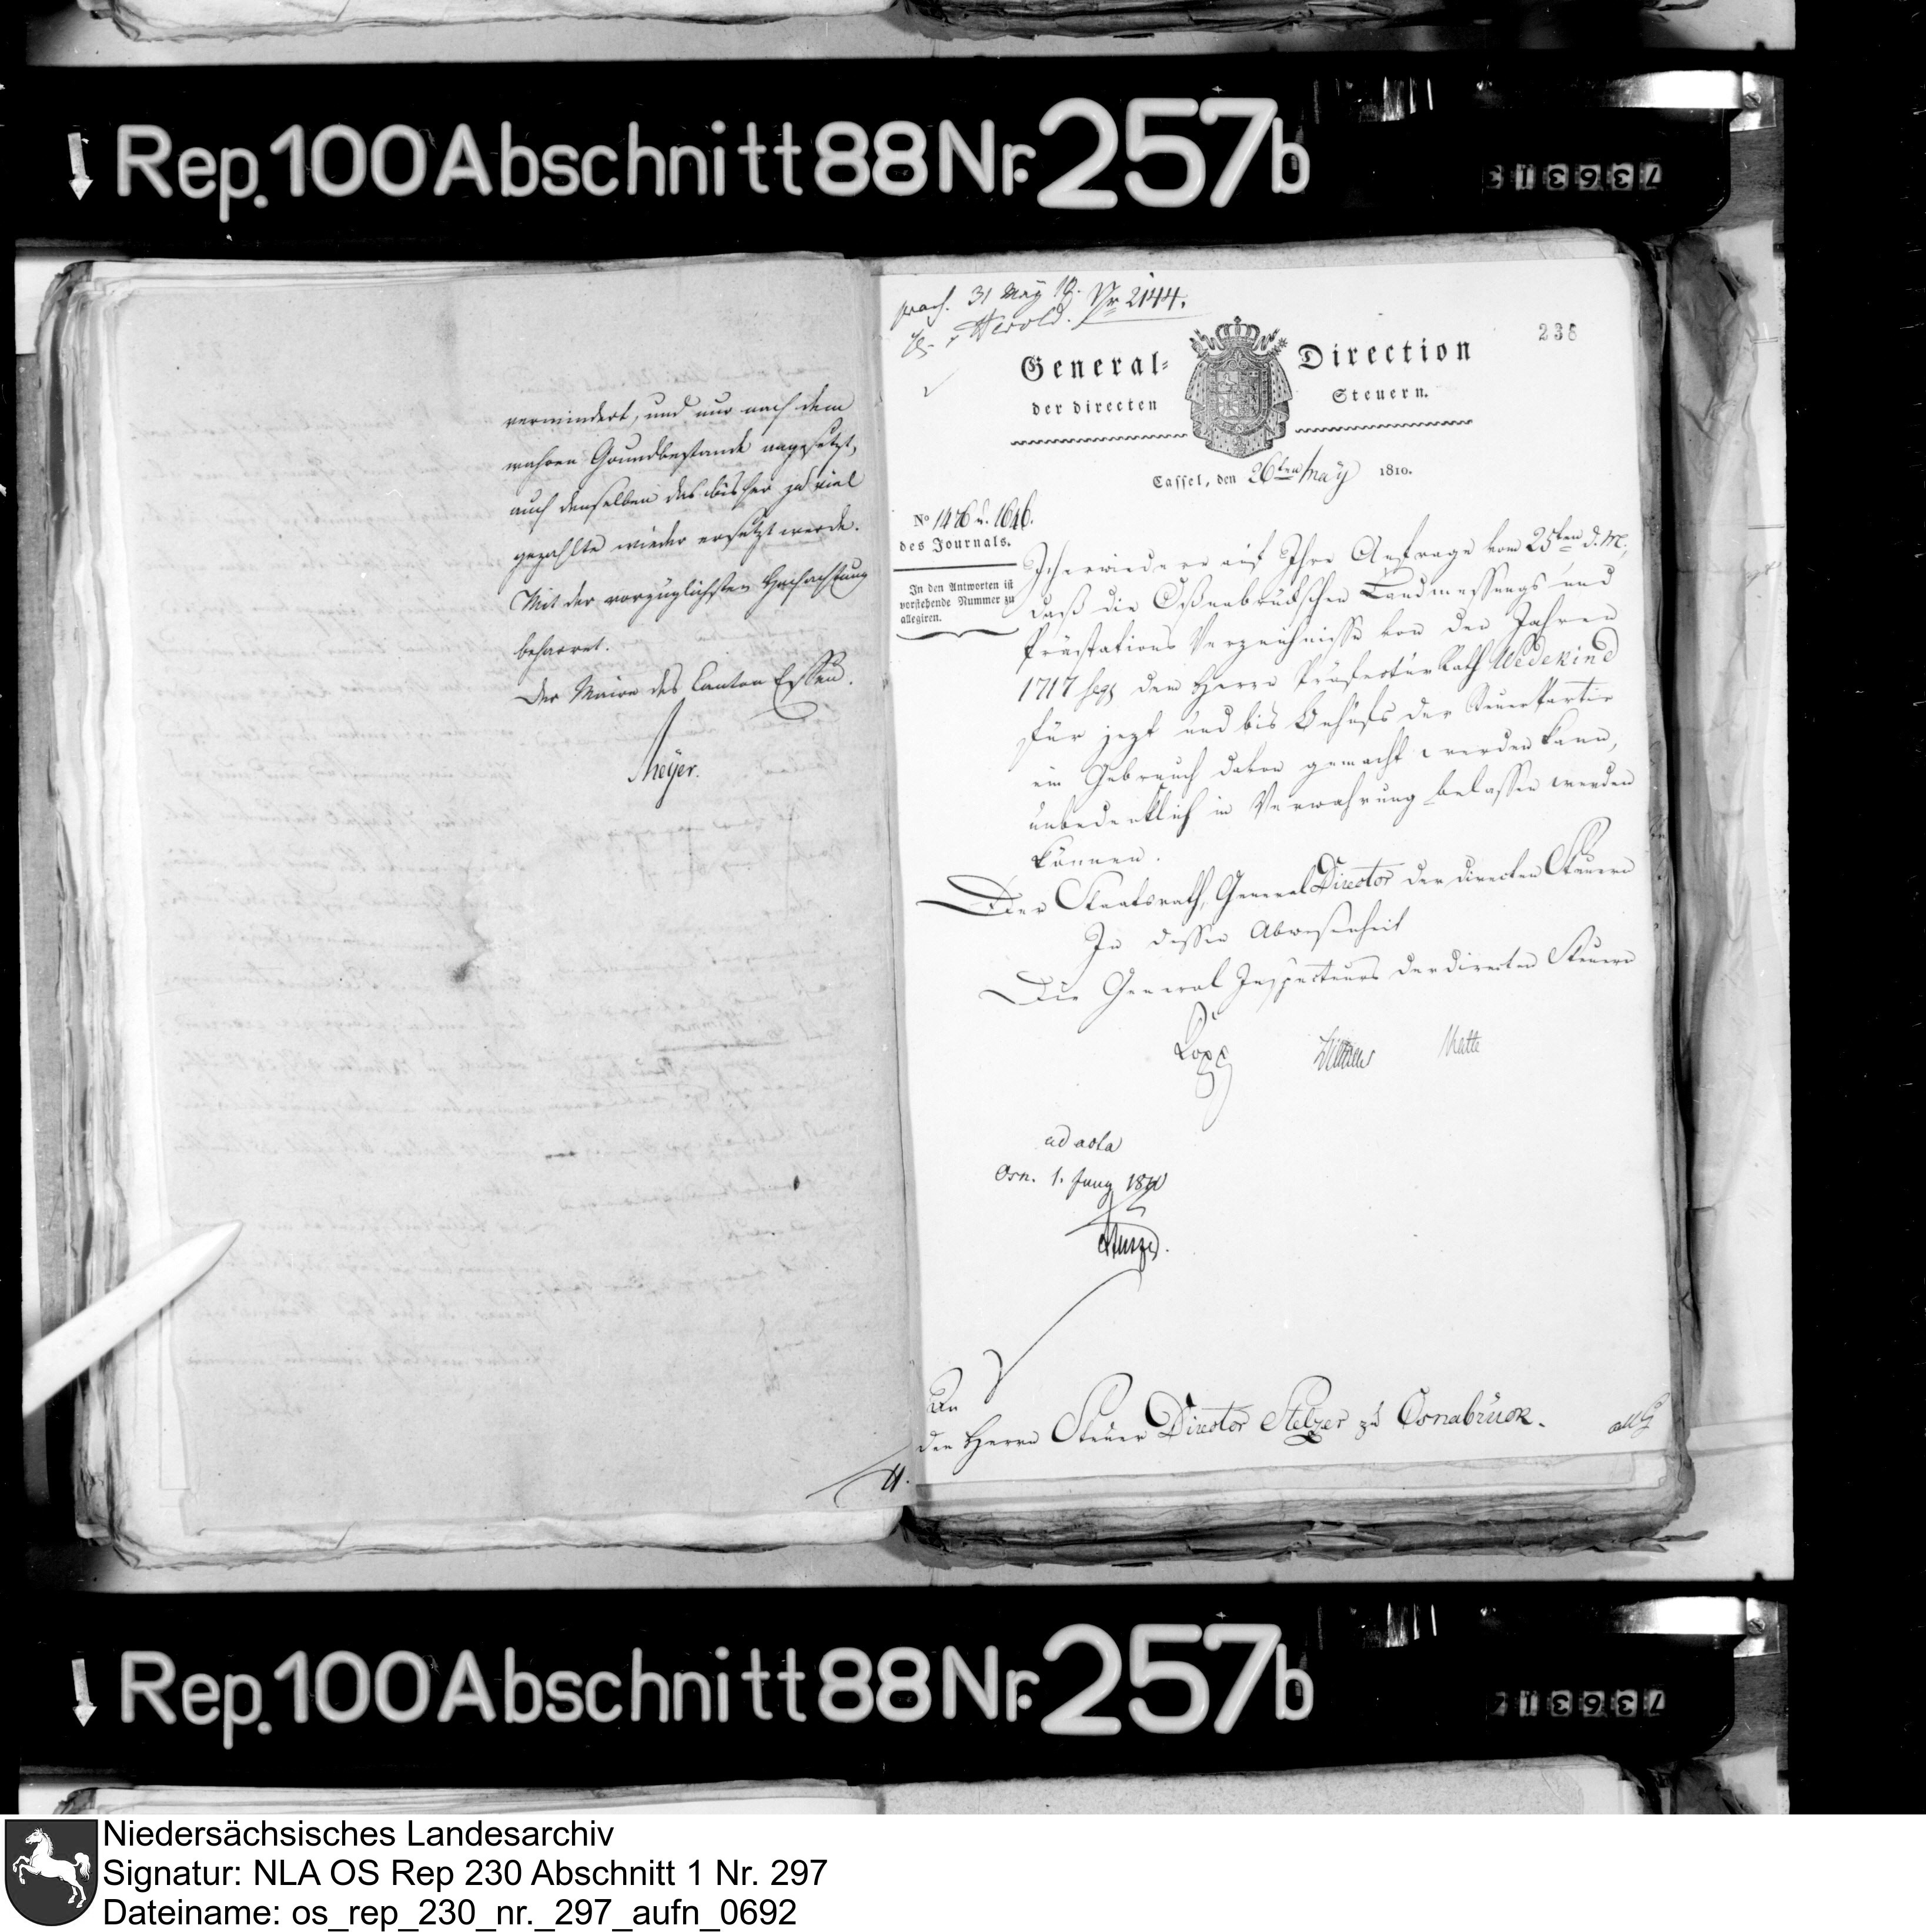 Rep. 100 Abschnitt 88 Nr. 257b
vermindert, und nur nach dem
wahren Grundbestande angesetzt,
auch denselben das bisher zu viel
gezahlte wieder ersetzt werde.
Mit der vorzüglichsten Hochachtung
beharret.
Der Maire des Canton Essen.
Meyer.
praes. 31 May 10. Nr 2144.
Herold.
238
General- Direction
der directen Steuern.
Cassel, den 26ten May 1810.
No 1476 u. 1646.
des Journals.
In den Antworten ist
vorstehende Nummer zu
allegiren.
Ich erwiedere auf Ihre Anfrage vom 25ten d. M.,
daß die Oßnabrückschen Landmessungs und
Prästations Verzeichnisse von den Jahren
1717 seqq dem Herrn Präfectur Rath Wedekind
für jezt und bis Behufs der Steuer Partie
ein Gebrauch davon gemacht werden kann,
unbedenklich in Verwahrung belassen werden
können.
Der Staatsrath, General Director der directen Steuern
In dessen Abwesenheit
Die General Inspecteurs der directen Steuern
ad acta
Osn. 1. Juny 1810
An
den Herrn Steuer Director Stelzer zu Osnabrück.
Rep. 100 Abschnitt 88 Nr. 257b
Niedersächsisches Landesarchiv
Signatur: NLA OS Rep 230 Abschnitt 1 Nr. 297
Dateiname: os_rep_230_nr._297_aufn_0692